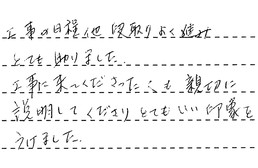 工事の日程他段取りよく進み
とても助かりました。
工事に来てくださった人も親切に
説明してくださりとてもいい印象を
うけました。